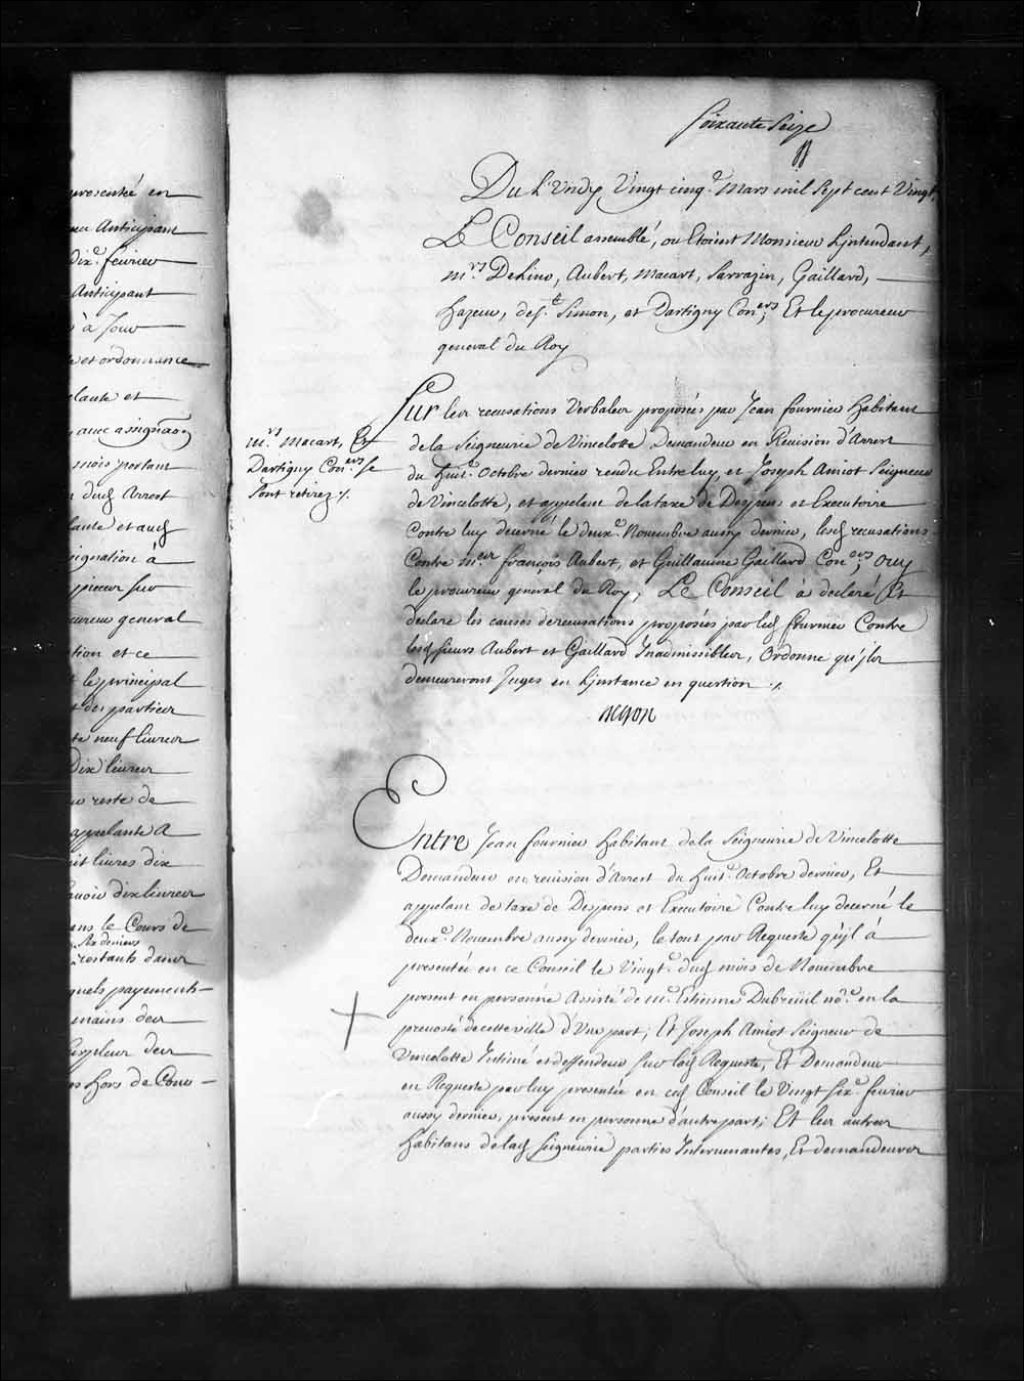 Soixante Seize
Du Lundy Vingt cinq.e Mars mil Sept cent Vingt.
Le Conseil assemblé, ou Etoient Monsieur L'jntendant,
m.rs Delino, Aubert, Macart, Sarrazin, Gaillard,
hazeur, de s.t Simon, et Dartigny Con.ers; Et le procureur
general du Roy
Sur les recusations Verbales proposées par Jean fournier habitant
de la Seigneurie de Vincelotte Demandeur en Revision d'Arrest
du huit.e Octobre dernier rendu Entre luy, et Joseph Amiot Seigneur
de Vincelotte, et appelant de la taxe de Depens et Executoire
Contre luy decerné le deux.e Novembre aussy dernier, lesd recusations
Contre m.es françois Aubert, et Guillaume Gaillard Con.ers; Ouy
le procureur general du Roy, Le Conseil à declaré Et
declare les causes de recusations proposées par led fournier Contre
lesd sieurs Aubert et Gaillard Inadmissibles, Ordonne qu'jls
demeureront Juges en L'jnstance en question ./.
Begon
m.rs Macart, Et
Dartigny Con.ers se
Sont retirez ./.
Entre Jean fournier habitant de la Seigneurie de Vincelotte
Demandeur en revision d'Arrest du huit.e Octobre dernier, Et
appelant de taxe de Despens et Executoire Contre luy decerné le
deux.e Novembre aussy dernier, le tout par Requeste qu'jl à
presentée en ce Conseil le Vingt.e dud mois de Novembre
present en personne Assisté de m.e Estienne Dubreüil no.re en la
prevosté de cette ville d'Une part; Et Joseph Amiot Seigneur de
Vincelotte Intimé et deffendeur sur lad Requeste, Et Demandeur
en Requeste par luy presentée en ced Conseil le Vingt six.e fevrier
aussy dernier, present en personne d'autre part; Et les autres
habitans de lad Seigneurie parties Intervenantes, Et demandeurs
presenté en
Anticipant
dix.e fevrier
Anticipant
à Jour
et ordonnance
lante et
avec assignaon
mois portant
dud Arrest
lante et aud
signation à
pieces sur
cureur general
tion et ce
le principal
des parties
neuf livres
Dix livres
reste de
appelante A
livres dix
dix livres
ans le Cours de
six deniers
restants dans
quels payements
mains des
des
hors de Cour